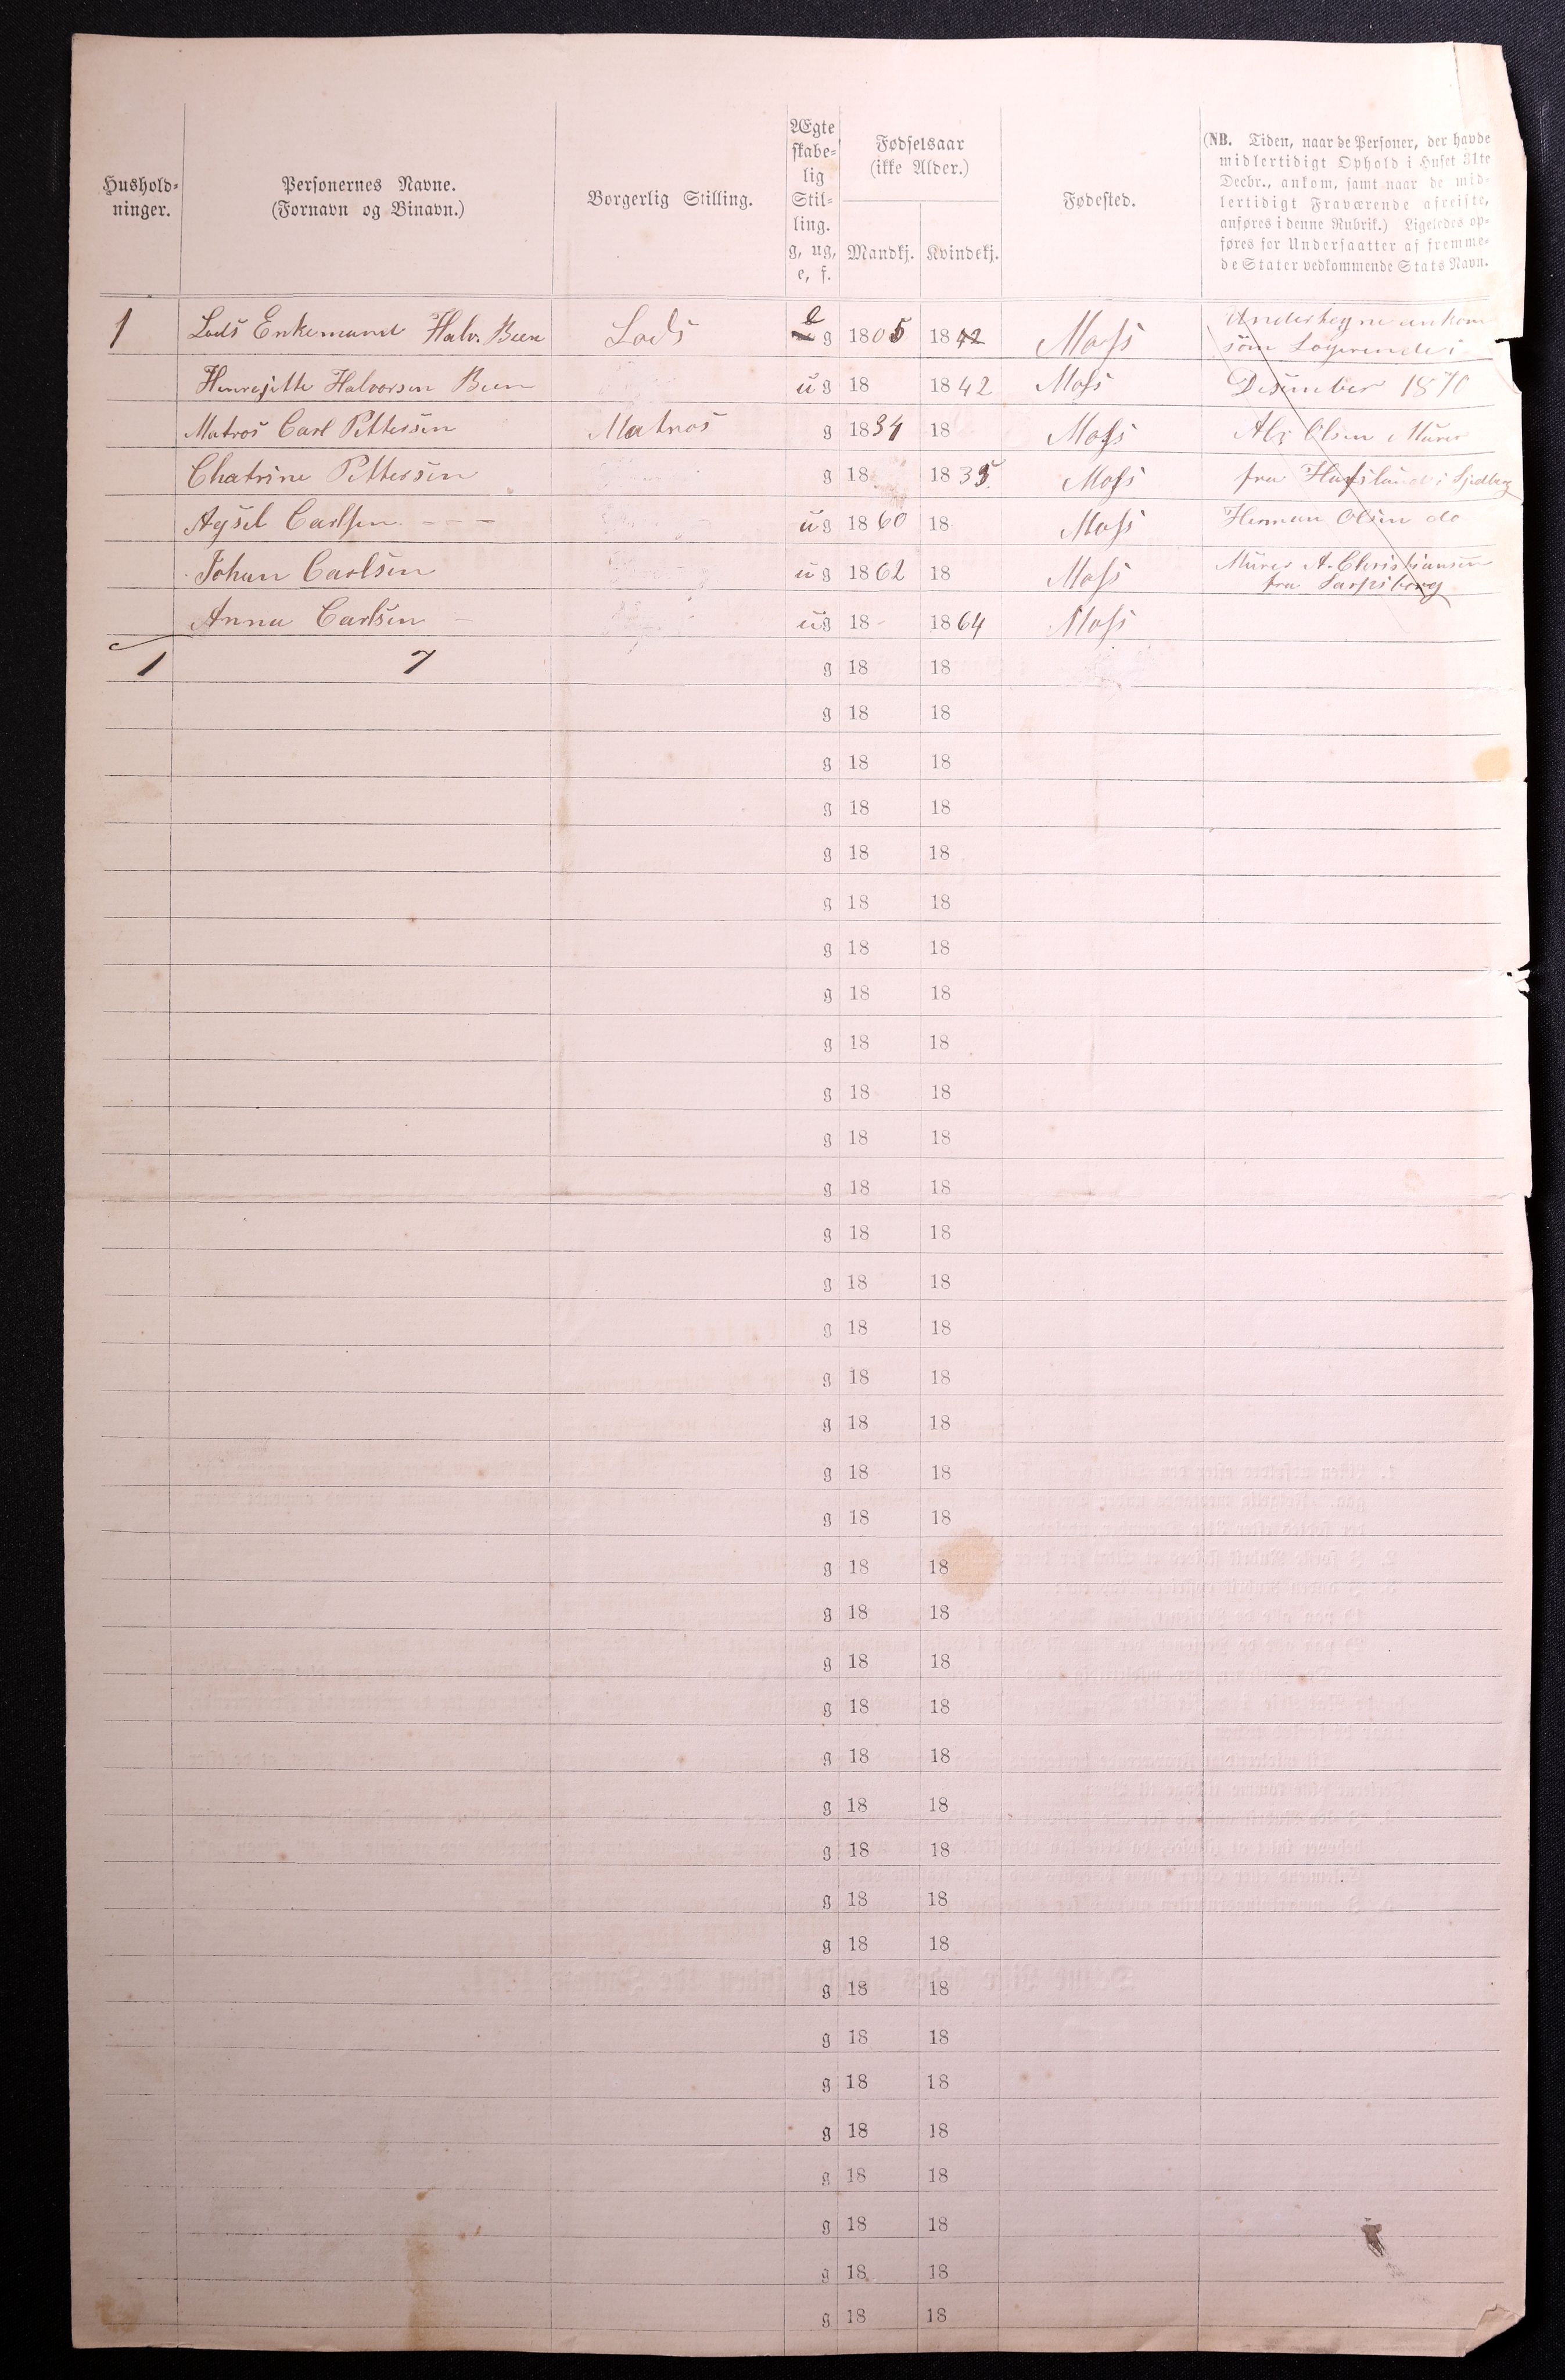 Hushold-
ninger.
Personernes Navne.
(Fornavn og Binavn.)
Borgerlig Stilling.
Ægte
skabe-
lig
Stil-
ling.
g, ug,
e, f.
Fødselsaar
(ikke Alder.)
Mandkj. Kvindekj.
Fødested.
(NB. Tiden, naar de Personer, der havde
midlertidigt Ophold i Huset 31te
Decbr., ankom, samt naar de mid-
lertidigt Fraværende afreiste,
anføres i denne Rubrik.) Ligeledes op-
føres for Undersaatter af fremme-
de Stater vedkommende Stats Navn.
1 Lods Enkemand Halv. Been Lods e g 1805 1842 Moss
Undertegne ankom
som Logerende i
Henrejitte Halvorsen Been ug 18 1842 Moss Desember 1870
Matros Carl Pettersen Matros g 1834 18 Moss Olsen Murer
Chatrine Pettersen g 18 1835 Moss fra Hafslund i
Agsel Carlsen - - - ug 1860 18 Moss Herman Olsen do
Johan Carlsen ug 1862 18 Moss Murer A. Christiansen
fra Sarpsborg
Anna Carlsen - ug 18 - 1864 Moss
1 7 g 18 18
g 18 18
g 18 18
g 18 18
g 18 18
g 18 18
g 18 18
g 18 18
g 18 18
g 18 18
g 18 18
g 18 18
g 18 18
g 18 18
g 18 18
g 18 18
g 18 18
g 18 18
g 18 18
g 18 18
g 18 18
g 18 18
g 18 18
g 18 18
g 18 18
g 18 18
g 18 18
g 18 18
g 18 18
g 18 18
g 18 18
g 18 18
g 18 18
g 18 18
g 18 18
g 18 18